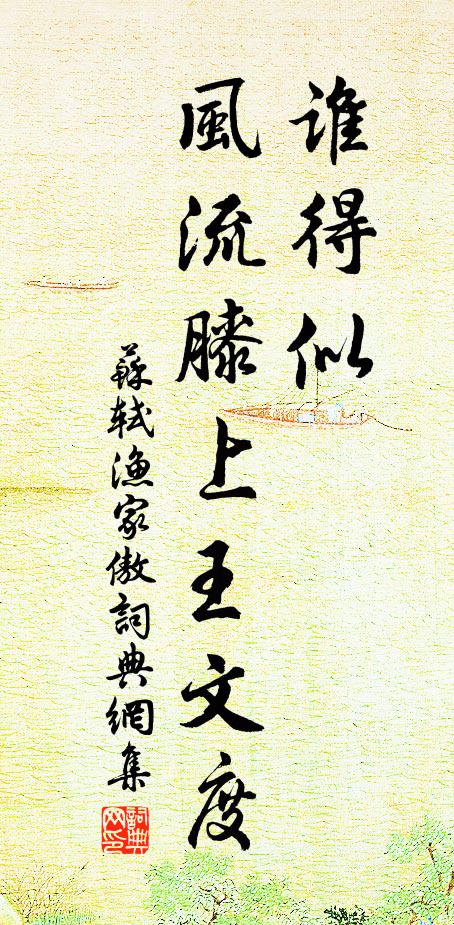 誰得似
風流膝上王文度
蘇軾漁家傲詞典網集
詞典网印